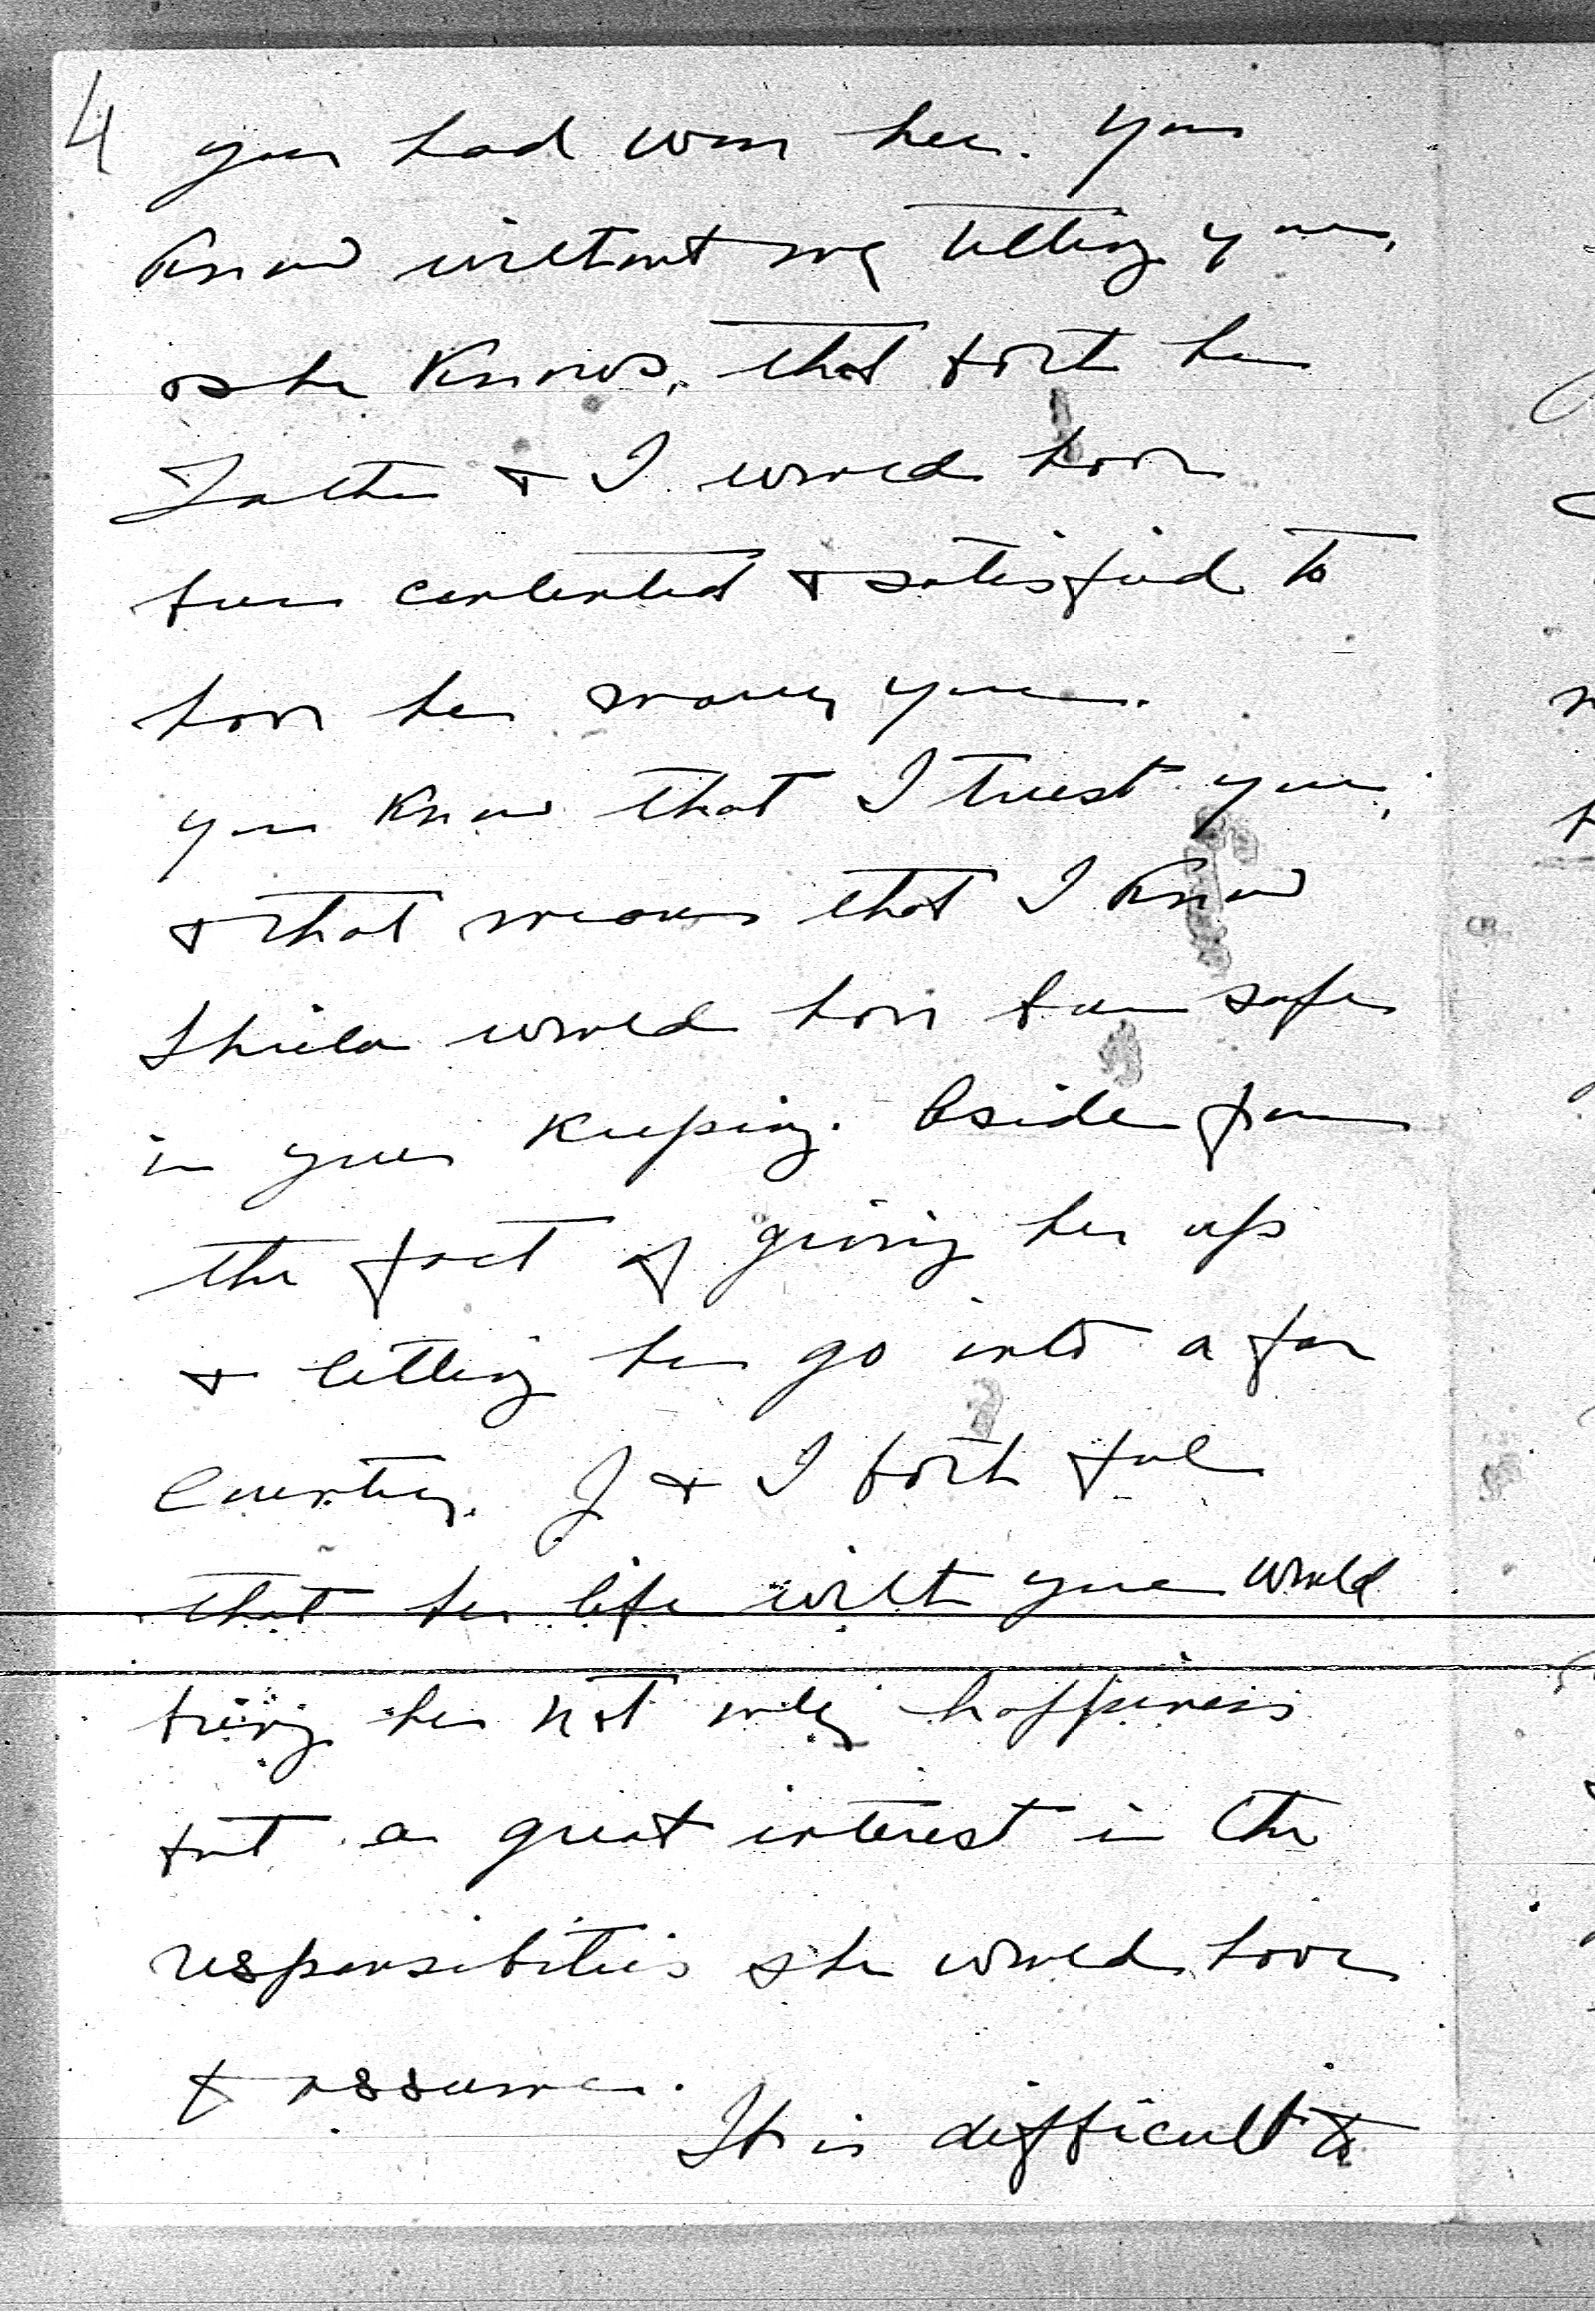 4
you had won her. You
know without my telling you,
as he knows, that both her
Father & I would have
been contented & satisfied to
have her marry you.
you know that I trust you,
& that means that I know
Shiela would have been safe
in your keeping. Aside from
the fact of giving her up
& letting her go into a far
Country. J & I both feel
that her life with you would
bring her not only happiness
but a great interest in the
responsibilities she would have
to assume.
It is difficult to